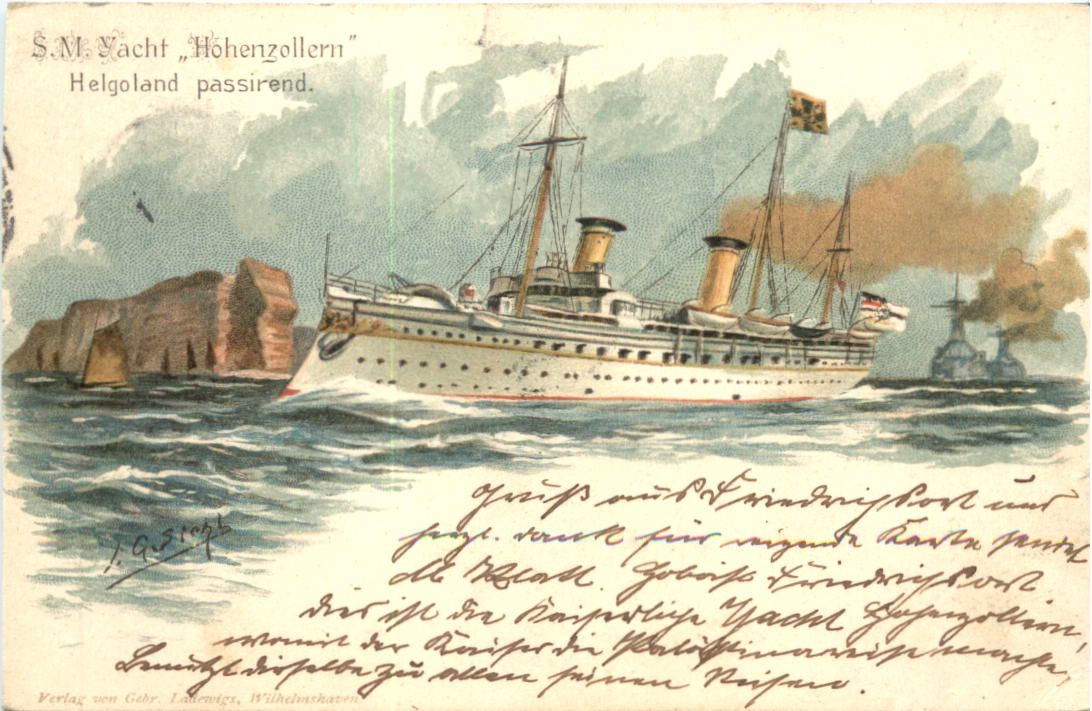 S.M. Yacht „Hohenzollern"
Helgoland passirend.
Gruß aus Friedrichsort und
herzl. dank für reizende Karte sendet
Friedrichsort.
dies ist die Kaiserliche Yacht Hohenzollern,
womit der Kaiser die Palästinareise machte,
Benützt dieselbe zu allen seinen Reisen.
Verlag von Gebr. Ladewigs, Wilhelmshaven